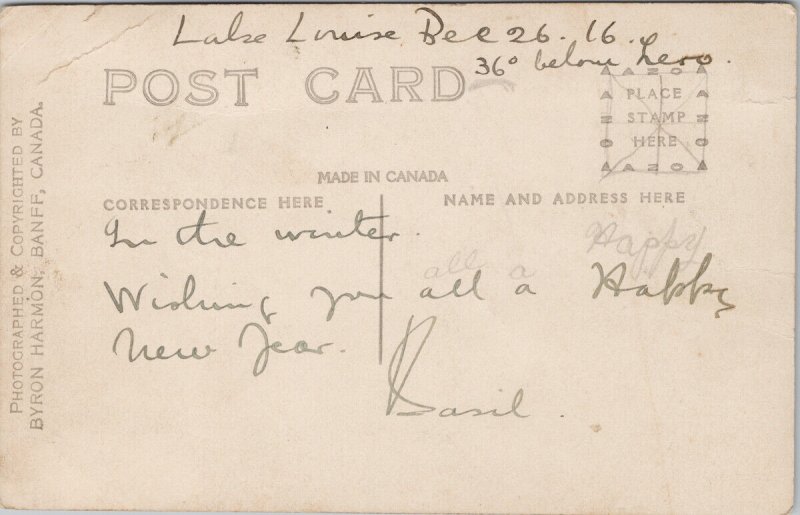 Lake Louise Dec 26. 16.
36° below Zero.
POST CARD
AZO
PLACE
STAMP
HERE
AZO
MADE IN CANADA
CORRESPONDENCE HERE
NAME AND ADDRESS HERE
In the winter.
Happy
all a
Wishing you all a Happy
New Year.
Basil.
PHOTOGRAPHED & COPYRIGHTED BY
BYRON HARMON, BANFF, CANADA.